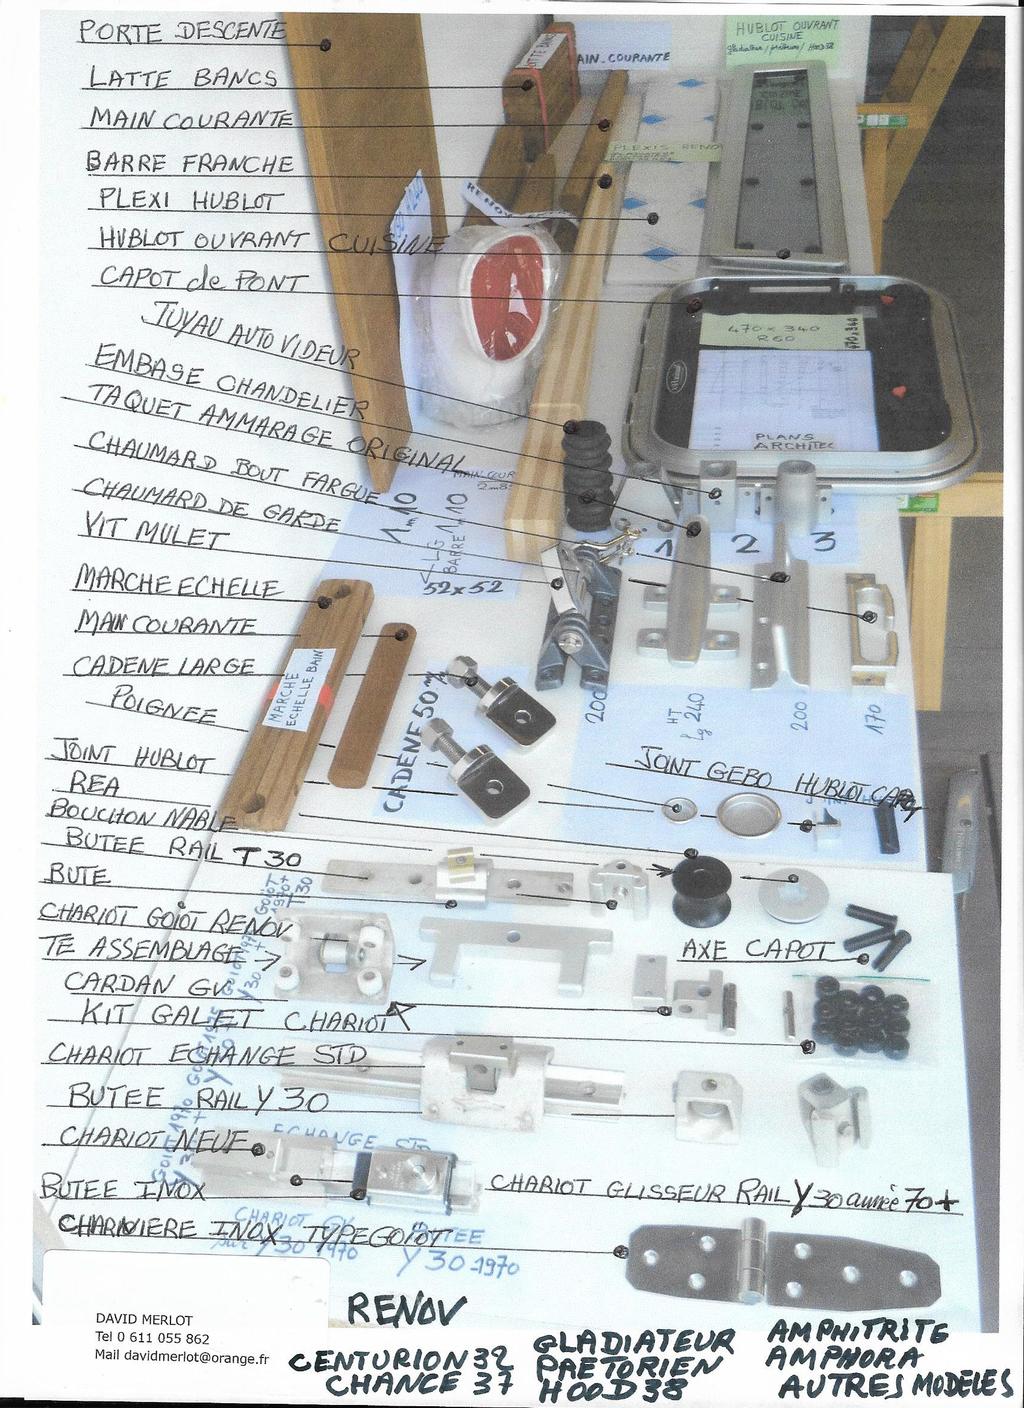 PORTE DESCENTE
LATTE BANCS
MAIN COURANTE
BARRE FRANCHE
PLEXI HUBLOT
HUBLOT OUVRANT CUISINE
CAPOT de PONT
TUYAU AUTO VIDEUR
EMBASE CHANDELIER
TAQUET AMMARAGE ORIGINAL
CHAUMARD BOUT FARGUE
CHAUMARD DE GARDE
VIT MULET
MARCHE ECHELLE
MAIN COURANTE
CADENE LARGE
POIGNEE
JOINT HUBLOT
REA
BOUCHON NABLE
BUTEE RAIL T30
BUTE
CHARIOT GOIOT RENOV
TE ASSEMBLAGE
CARDAN GV
KIT GALET CHARIOT
CHARIOT ECHANGE STD
BUTEE RAIL Y30
CHARIOT NEUF
BUTEE INOX
CHARNIERE INOX TYPE GOIOT
HUBLOT OUVRANT
CUISINE
AIN.COURANTE
PLEXIS RENO
470 x 340
R60
470x340
PLANS
ARCHITEC
MAIN COUR
1m10
LG
BARRE 1m10
52x52
1 2 3
MARCHE
ECHELLE BAIN
CADENE 50 m/m
200
HT
Lg 240
200
170
JOINT GEBO HUBLOT CAPO
AXE CAPOT
ECHANGE ST
CHARIOT GLISSEUR RAIL Y30 année 70+
CHARIOT GV
Y30 1970
BUTEE
Y30 -1970
DAVID MERLOT
Tel 0 611 055 862
Mail davidmerlot@orange.fr
RENOV
CENTURION 32
CHANCE 37
GLADIATEUR
PRETORIEN
HOOD 38
AMPHITRITE
AMPHORA
AUTRES MODELES